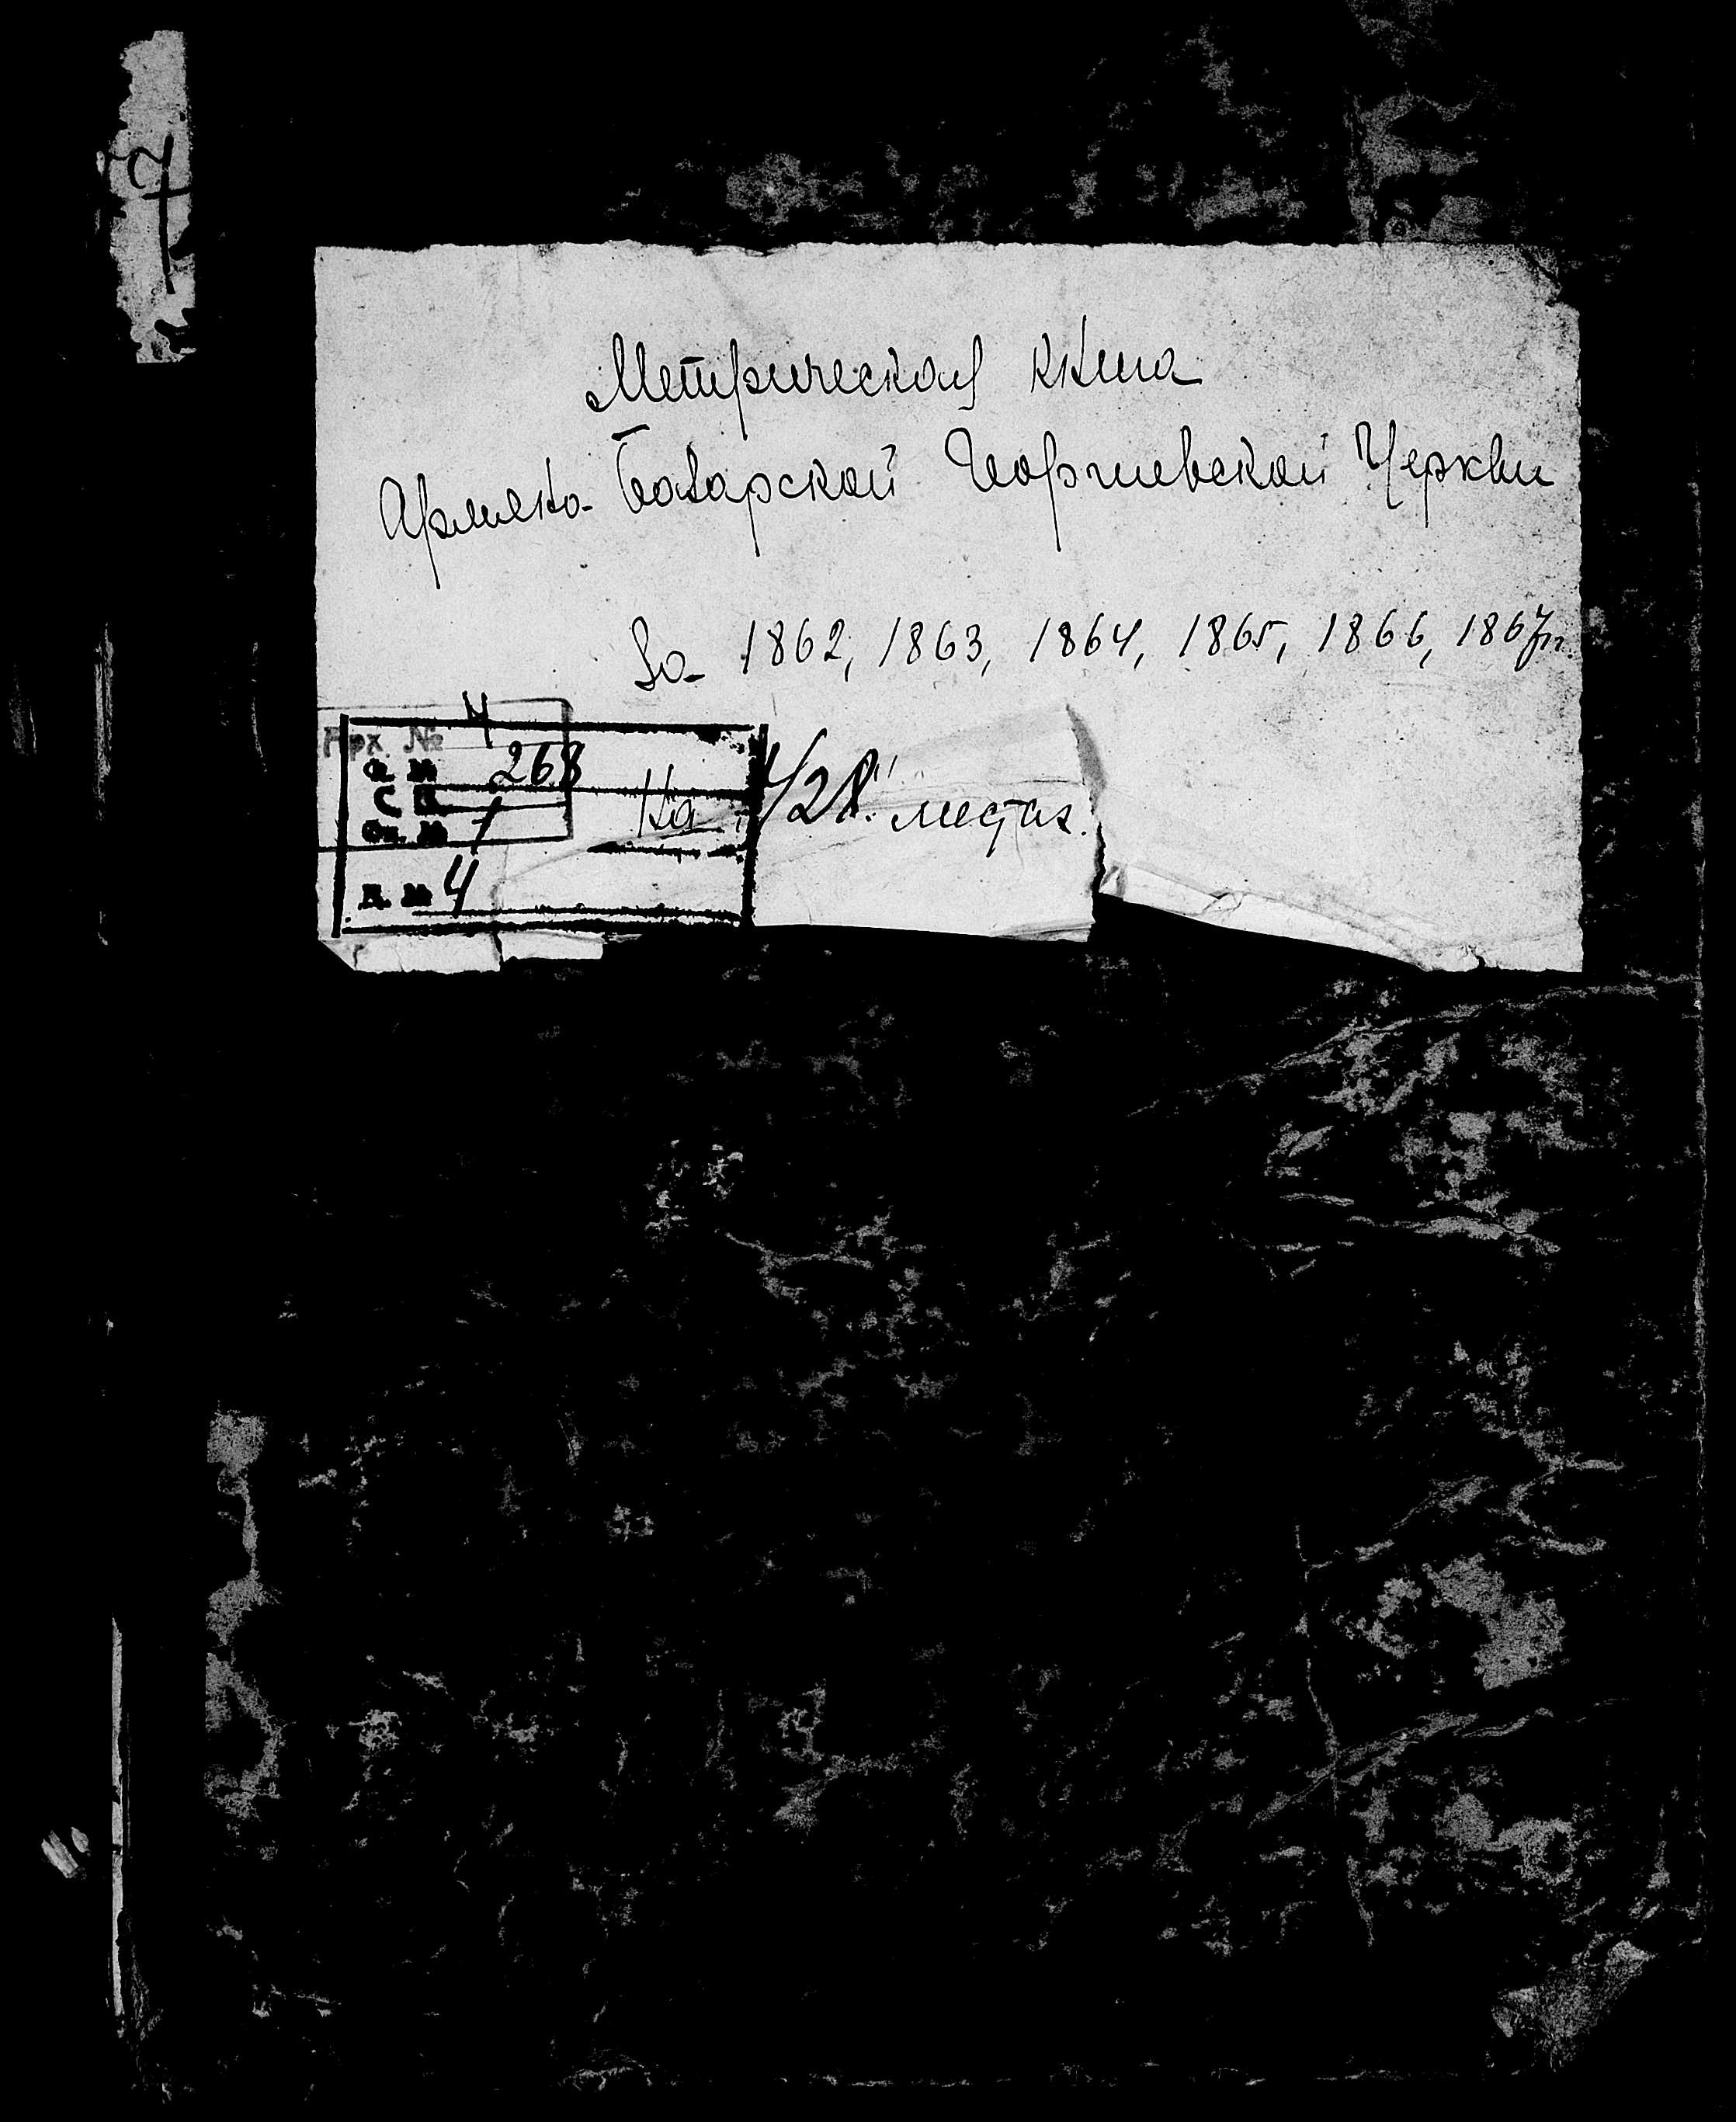 7
Метрическая книга
Армяно-Базарской Георгиевской Церкви
За 1862, 1863, 1864, 1865, 1866, 1867 гг.
Арх. № 4
Ф. № 268
Оп. № 1
Д. № 4
На листах.